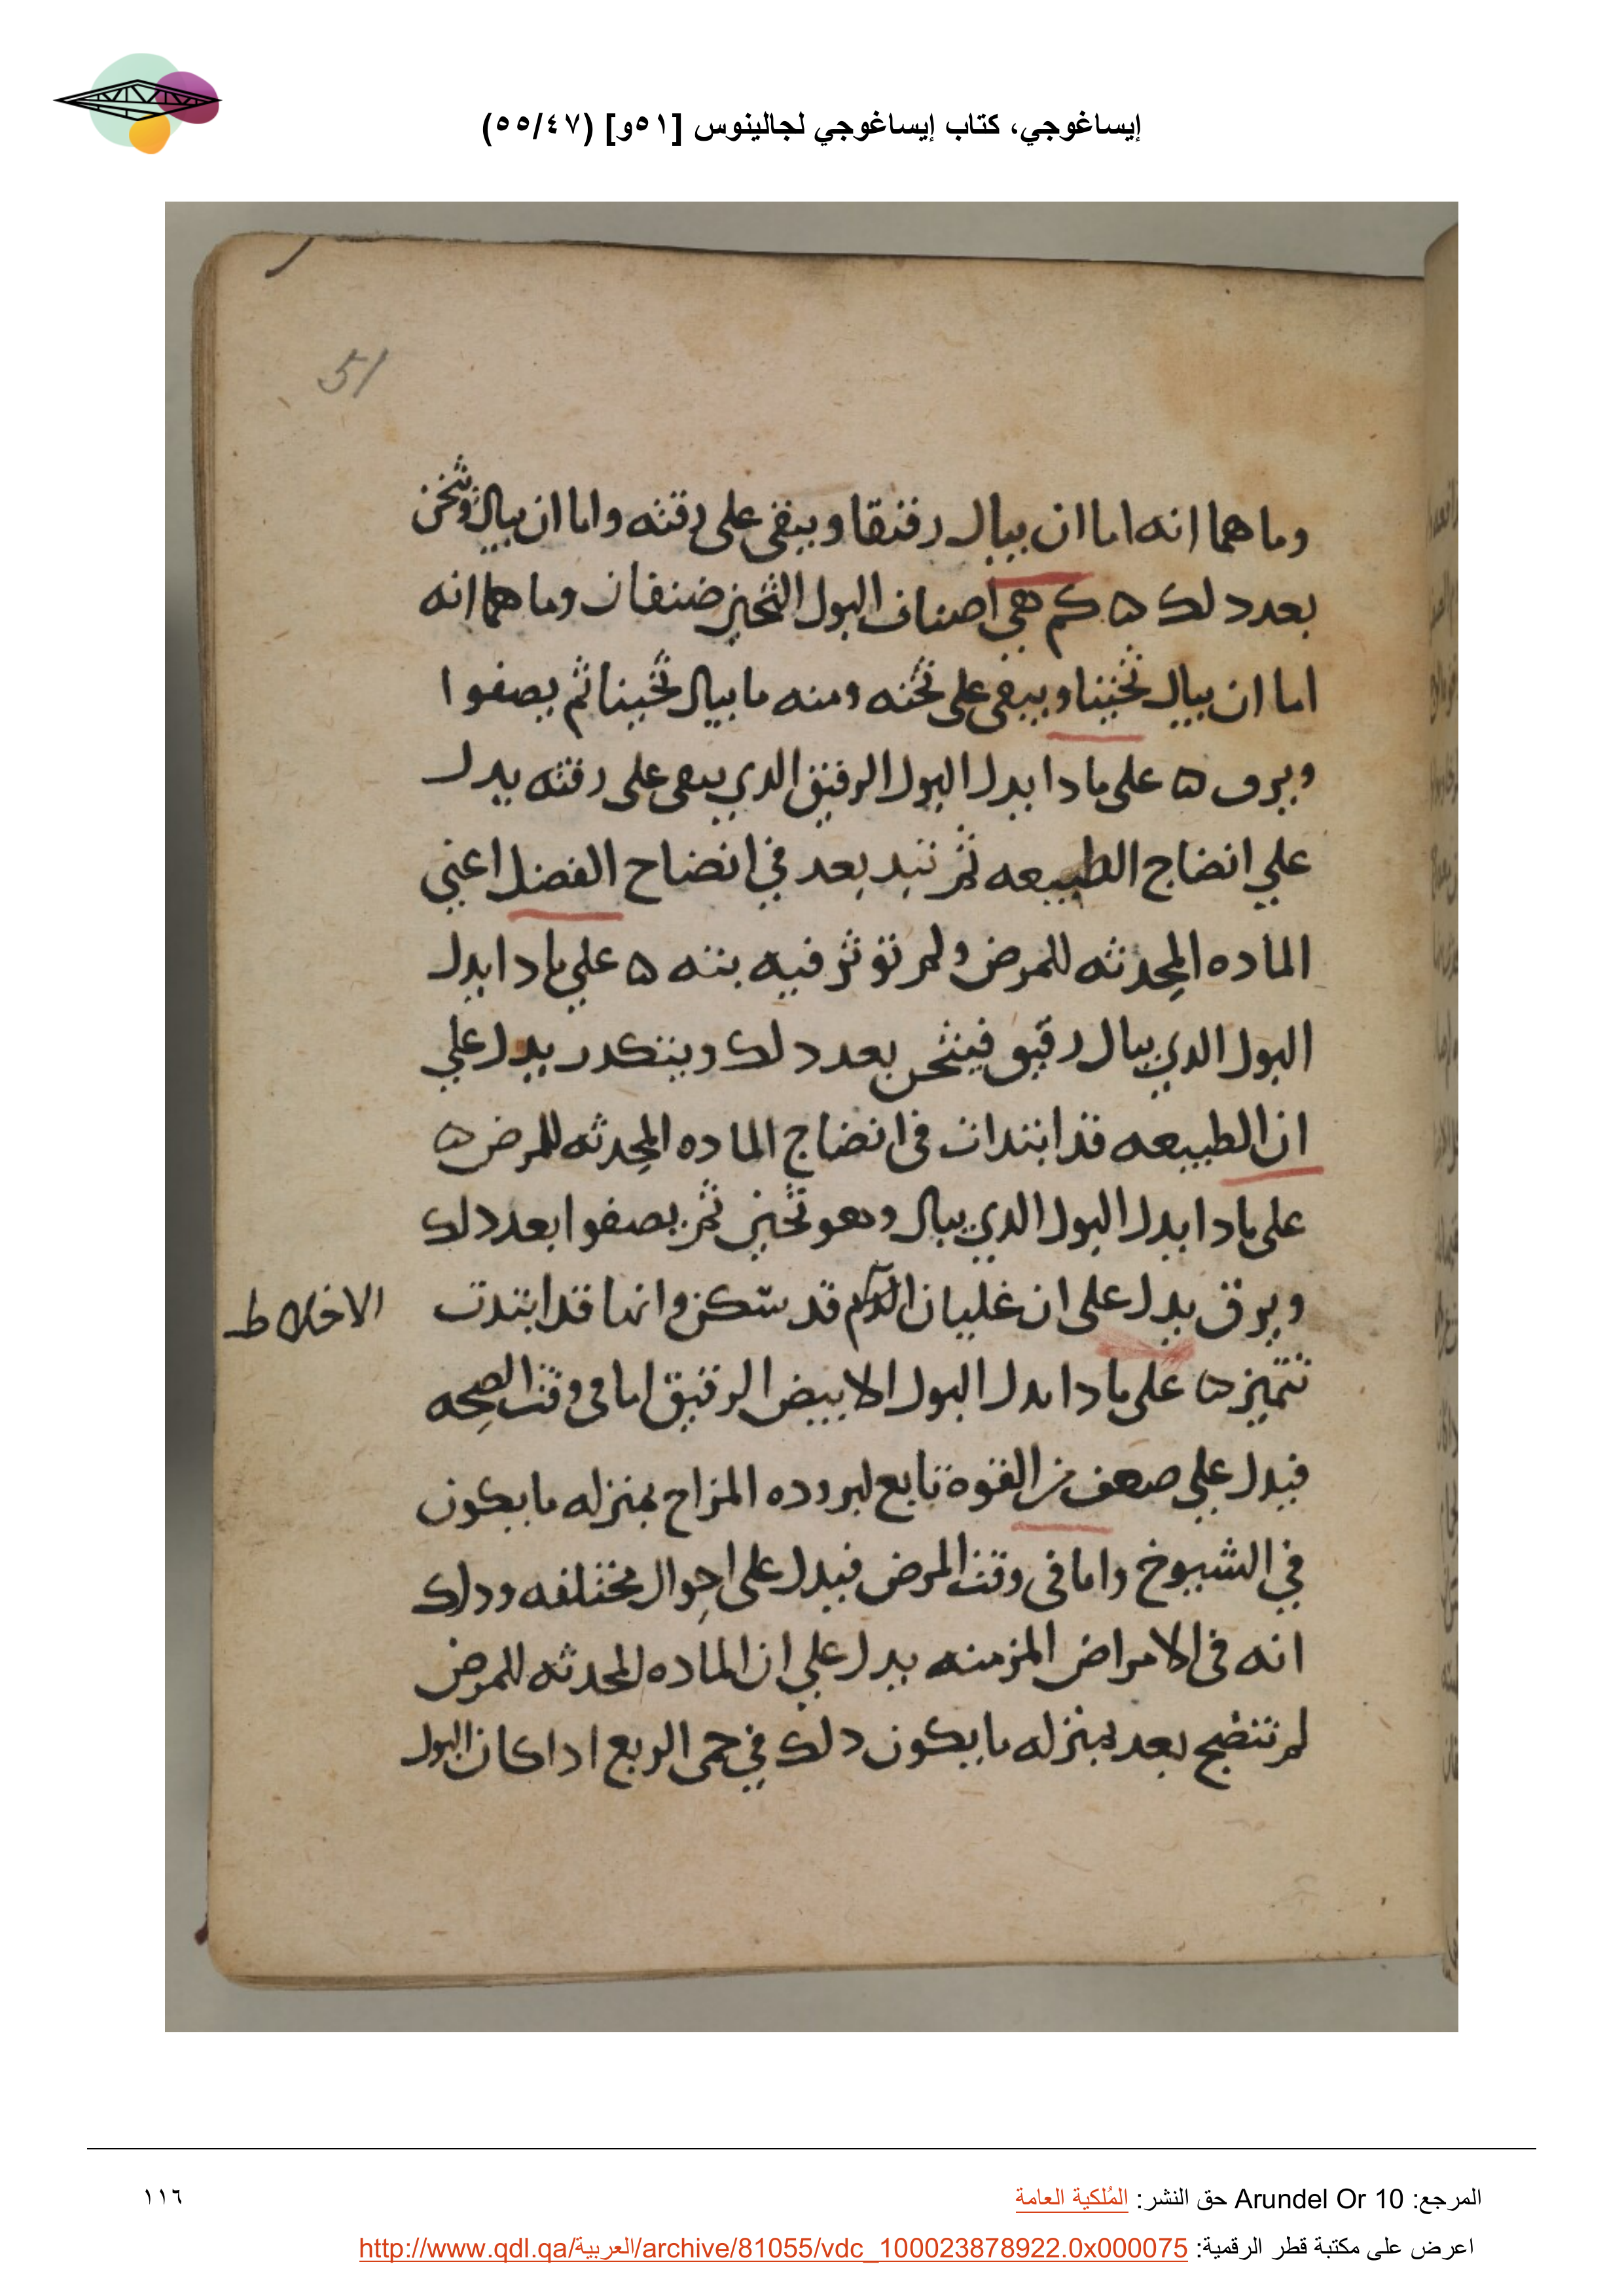 إيساغوجي، كتاب إيساغوجي لجالينوس [٥١و] (٥٥/٤٧)
51
وما هما انه اما ان يبال رقيقا ويبقى على رقته واما ان يبال ويثخن
بعد دلك ه كم هي اصناف البول الثخين صنفان وما هما انه
اما ان يبال ثخينا ويبقى على ثخنه ومنه ما يبال ثخينا ثم يصفوا
ويرق ه على مادا يدل البول الرقيق الدي يبقى على رقته يدل
علي انضاج الطبيعه لم تبتد بعد في انضاج الفضل اعني
الماده المحدثه للمرض ولم توثر فيه بته ه علي مادا يدل
البول الدي يبال رقيق فيثخن بعد دلك ويتكدر يدل علي
ان الطبيعه قد ابتدات في انضاج الماده المحدثه للمرض ه
على مادا يدل البول الدي يبال وهو ثخين ثم يصفوا بعد دلك
ويرق يدل على ان غليان الدم قد سكن وانها قد ابتدت
الاخلاط
تتميز ه على مادا يدل البول الابيض الرقيق اما في وقت الصحه
فيدل علي ضعف من القوة تابع لبروده المزاج بمنزله ما يكون
في الشيوخ واما في وقت المرض فيدل على احوال مختلفه ودلك
انه في الامراض المزمنه يدل علي ان الماده المحدثه للمرض
لم تنضج بعد بمنزله ما يكون دلك في حمى الربع ادا كان البول
المرجع: Arundel Or 10 حق النشر: المُلكية العامة
١١٦
اعرض على مكتبة قطر الرقمية: http://www.qdl.qa/العربية/archive/81055/vdc_100023878922.0x000075